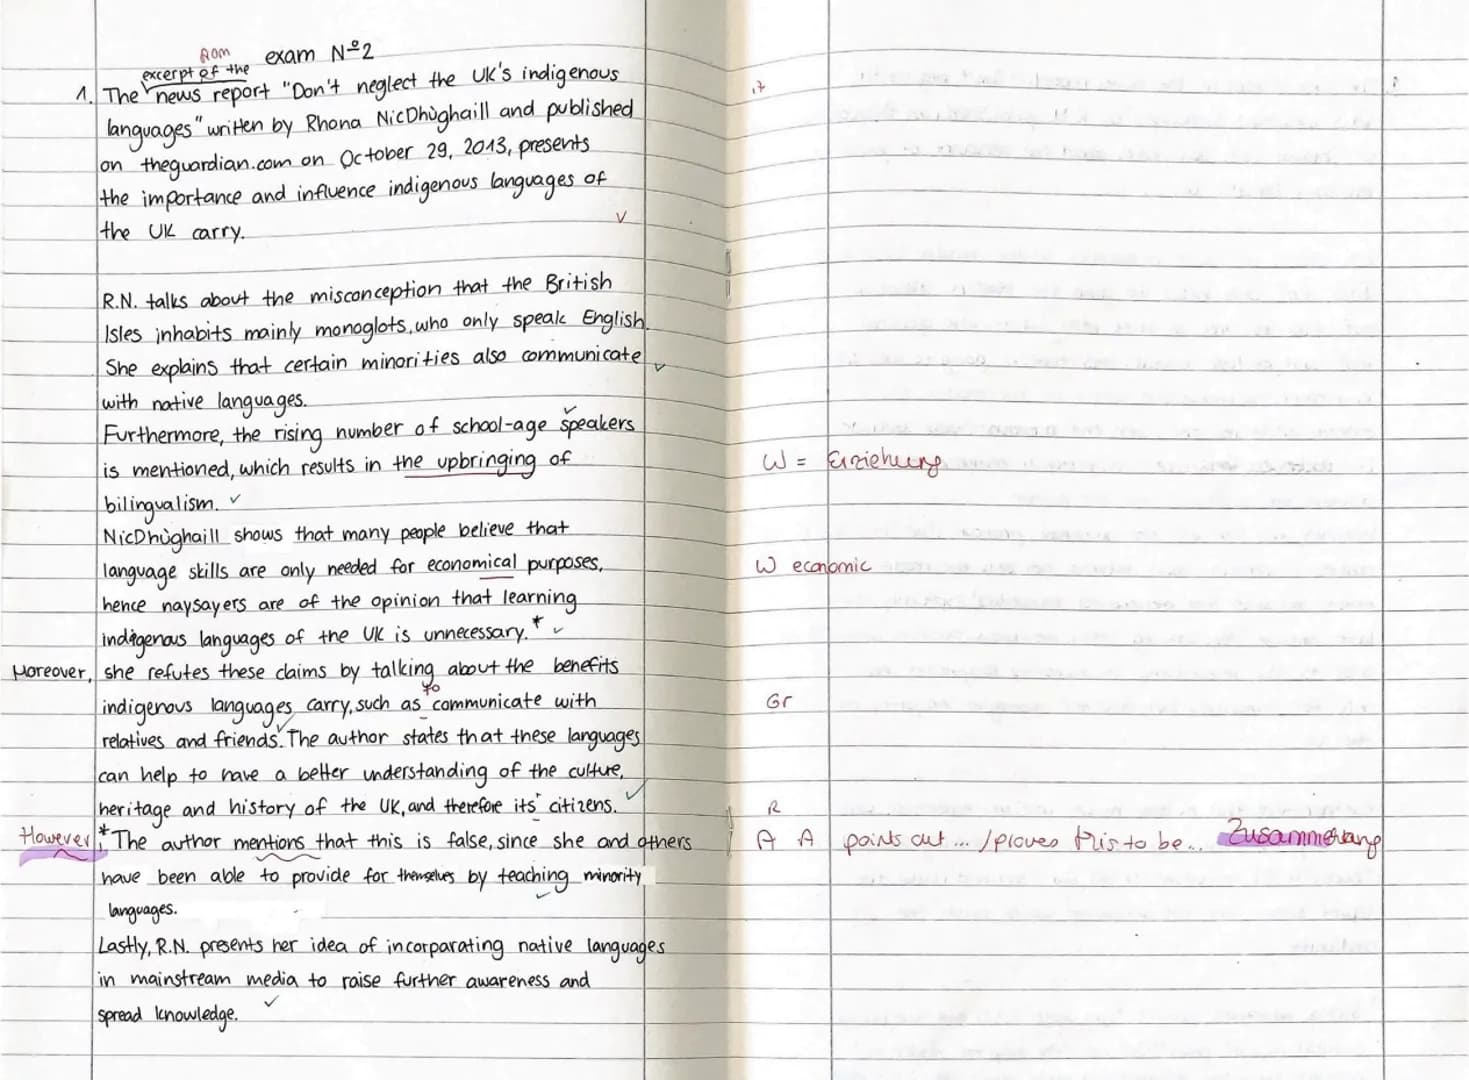 from
exam Nº2
excerpt of the
1. The news report "Don't neglect the UK's indigenous
languages" written by Rhona NicDhùghaill and published
on theguardian.com on October 29, 2013, presents
the importance and influence indigenous languages of
the UK carry.
R.N. talks about the misconception that the British
Isles inhabits mainly monoglots, who only speak English.
She explains that certain minorities also communicate
with native languages.
Furthermore, the rising number of school-age speakers
is mentioned, which results in the upbringing of
W = Erziehung
bilingualism.
NicDhùghaill shows that many people believe that
language skills are only needed for economical purposes,
W economic
hence naysayers are of the opinion that learning
indigenous languages of the UK is unnecessary.*
Moreover, she refutes these claims by talking about the benefits
to
indigenous languages carry, such as communicate with
Gr
relatives and friends. The author states that these languages
can help to have a better understanding of the culture,
heritage and history of the UK, and therefore its citizens.
R
However, *The author mentions that this is false, since she and others
A A points out ... /proves this to be... Zusammenhang
have been able to provide for themselves by teaching minority
languages.
Lastly, R.N. presents her idea of incorparating native languages
in mainstream media to raise further awareness and
spread knowledge.